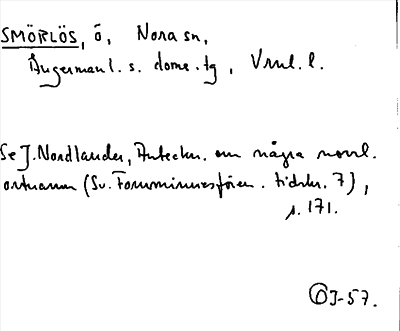 SMÖRLÖS, ö, Nora sn,
Ångermanl. s. doms. tg, Vnul. l.
Se J. Nordlander, Anteckn. om några norrl.
ortnamn (Sv. Fornminnesfören. tidskr. 7),
s. 171.
OJ-57.